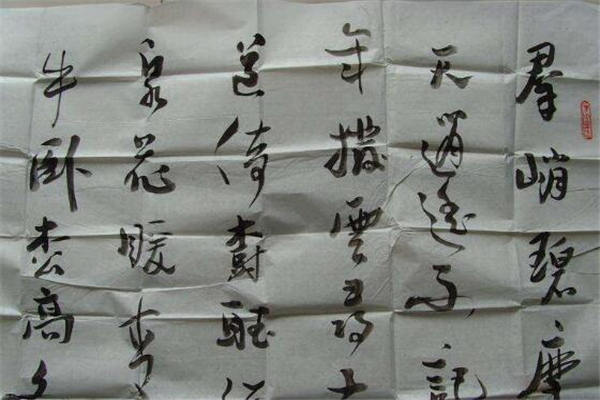 羣峭碧摩
天逍遙不記
年撥雲尋古
道倚樹聽
泉花暖青
牛臥松高